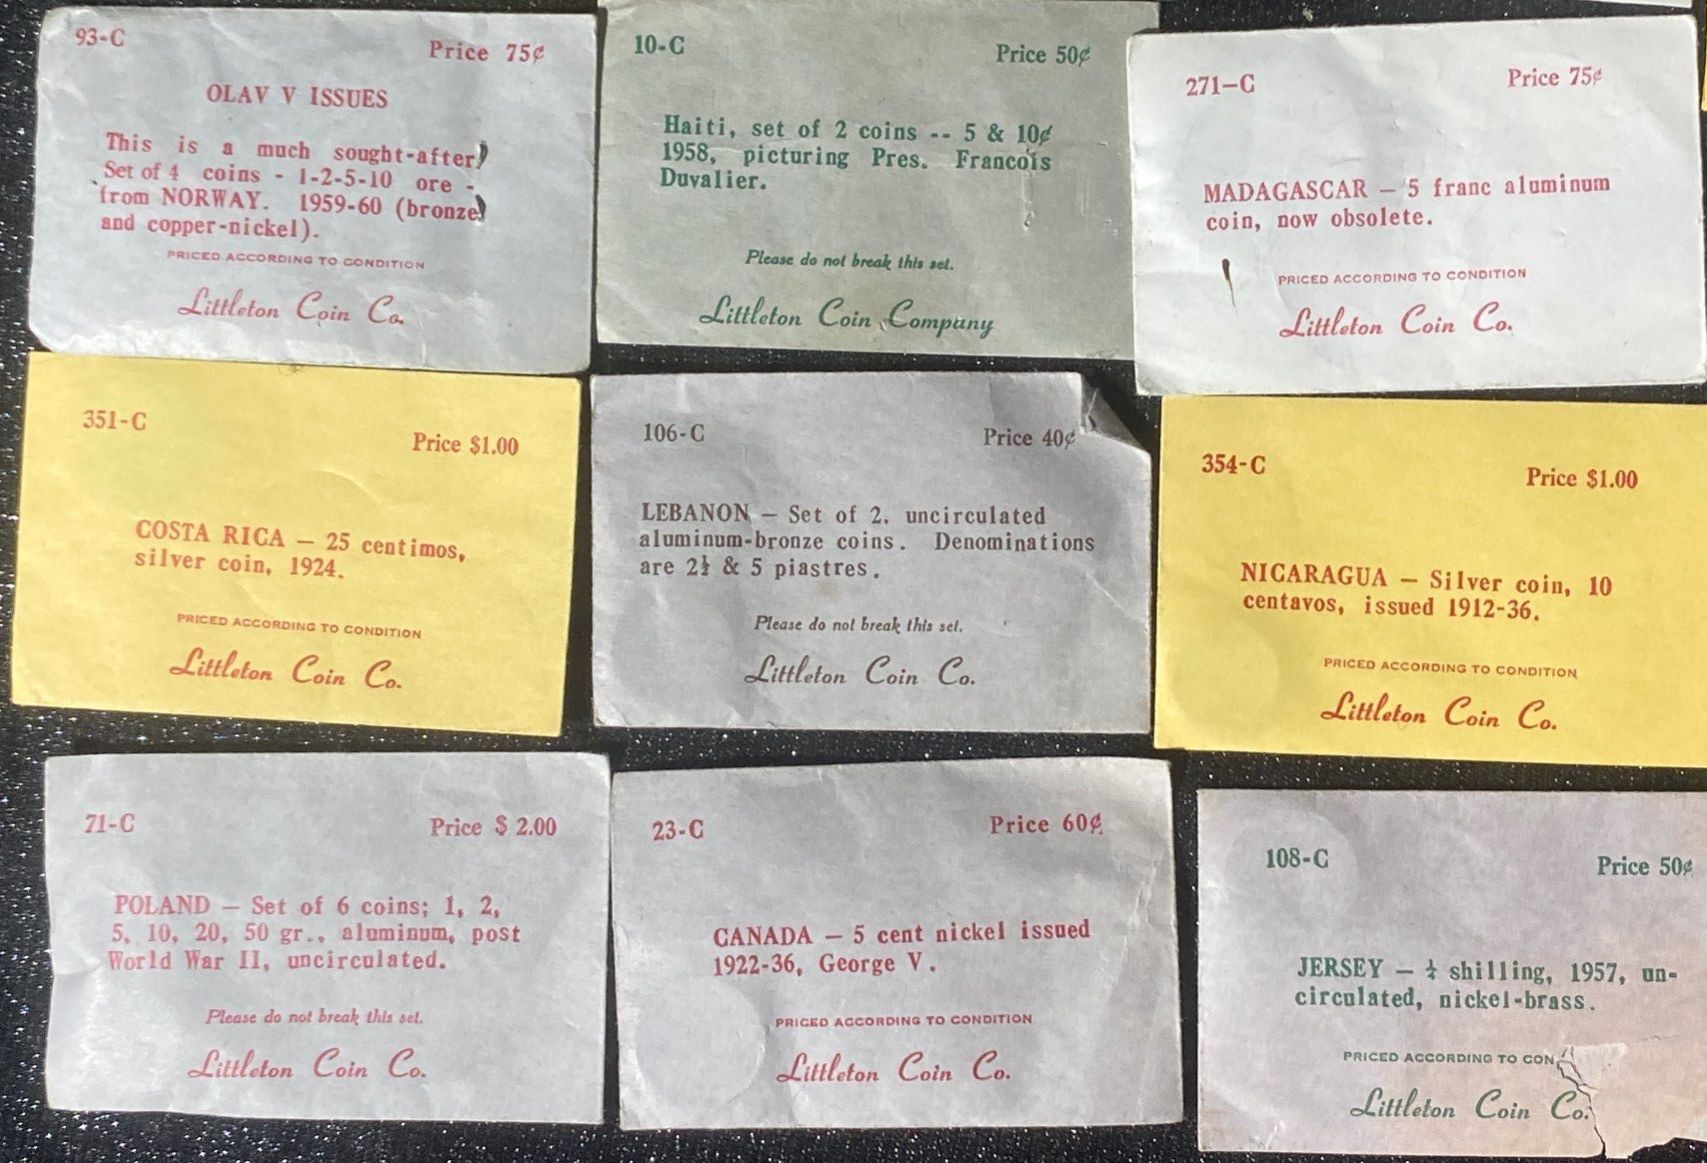 93-C
Price 75¢
OLAV V ISSUES
This is a much sought-after
Set of 4 coins - 1-2-5-10 ore -
from NORWAY. 1959-60 (bronze
and copper-nickel).
PRICED ACCORDING TO CONDITION
Littleton Coin Co.
10-C
Price 50¢
Haiti, set of 2 coins -- 5 & 10¢
1958, picturing Pres. Francois
Duvalier.
Please do not break this set.
Littleton Coin Company
271-C
Price 75¢
MADAGASCAR - 5 franc aluminum
coin, now obsolete.
PRICED ACCORDING TO CONDITION
Littleton Coin Co.
351-C
Price $1.00
COSTA RICA - 25 centimos,
silver coin, 1924.
PRICED ACCORDING TO CONDITION
Littleton Coin Co.
106-C
Price 40¢
LEBANON - Set of 2, uncirculated
aluminum-bronze coins. Denominations
are 2½ & 5 piastres.
Please do not break this set.
Littleton Coin Co.
354-C
Price $1.00
NICARAGUA - Silver coin, 10
centavos, issued 1912-36.
PRICED ACCORDING TO CONDITION
Littleton Coin Co.
71-C
Price $ 2.00
POLAND - Set of 6 coins; 1, 2,
5, 10, 20, 50 gr., aluminum, post
World War II, uncirculated.
Please do not break this set.
Littleton Coin Co.
23-C
Price 60¢
CANADA - 5 cent nickel issued
1922-36, George V.
PRICED ACCORDING TO CONDITION
Littleton Coin Co.
108-C
Price 50¢
JERSEY - ¼ shilling, 1957, un-
circulated, nickel-brass.
PRICED ACCORDING TO CON
Littleton Coin Co.